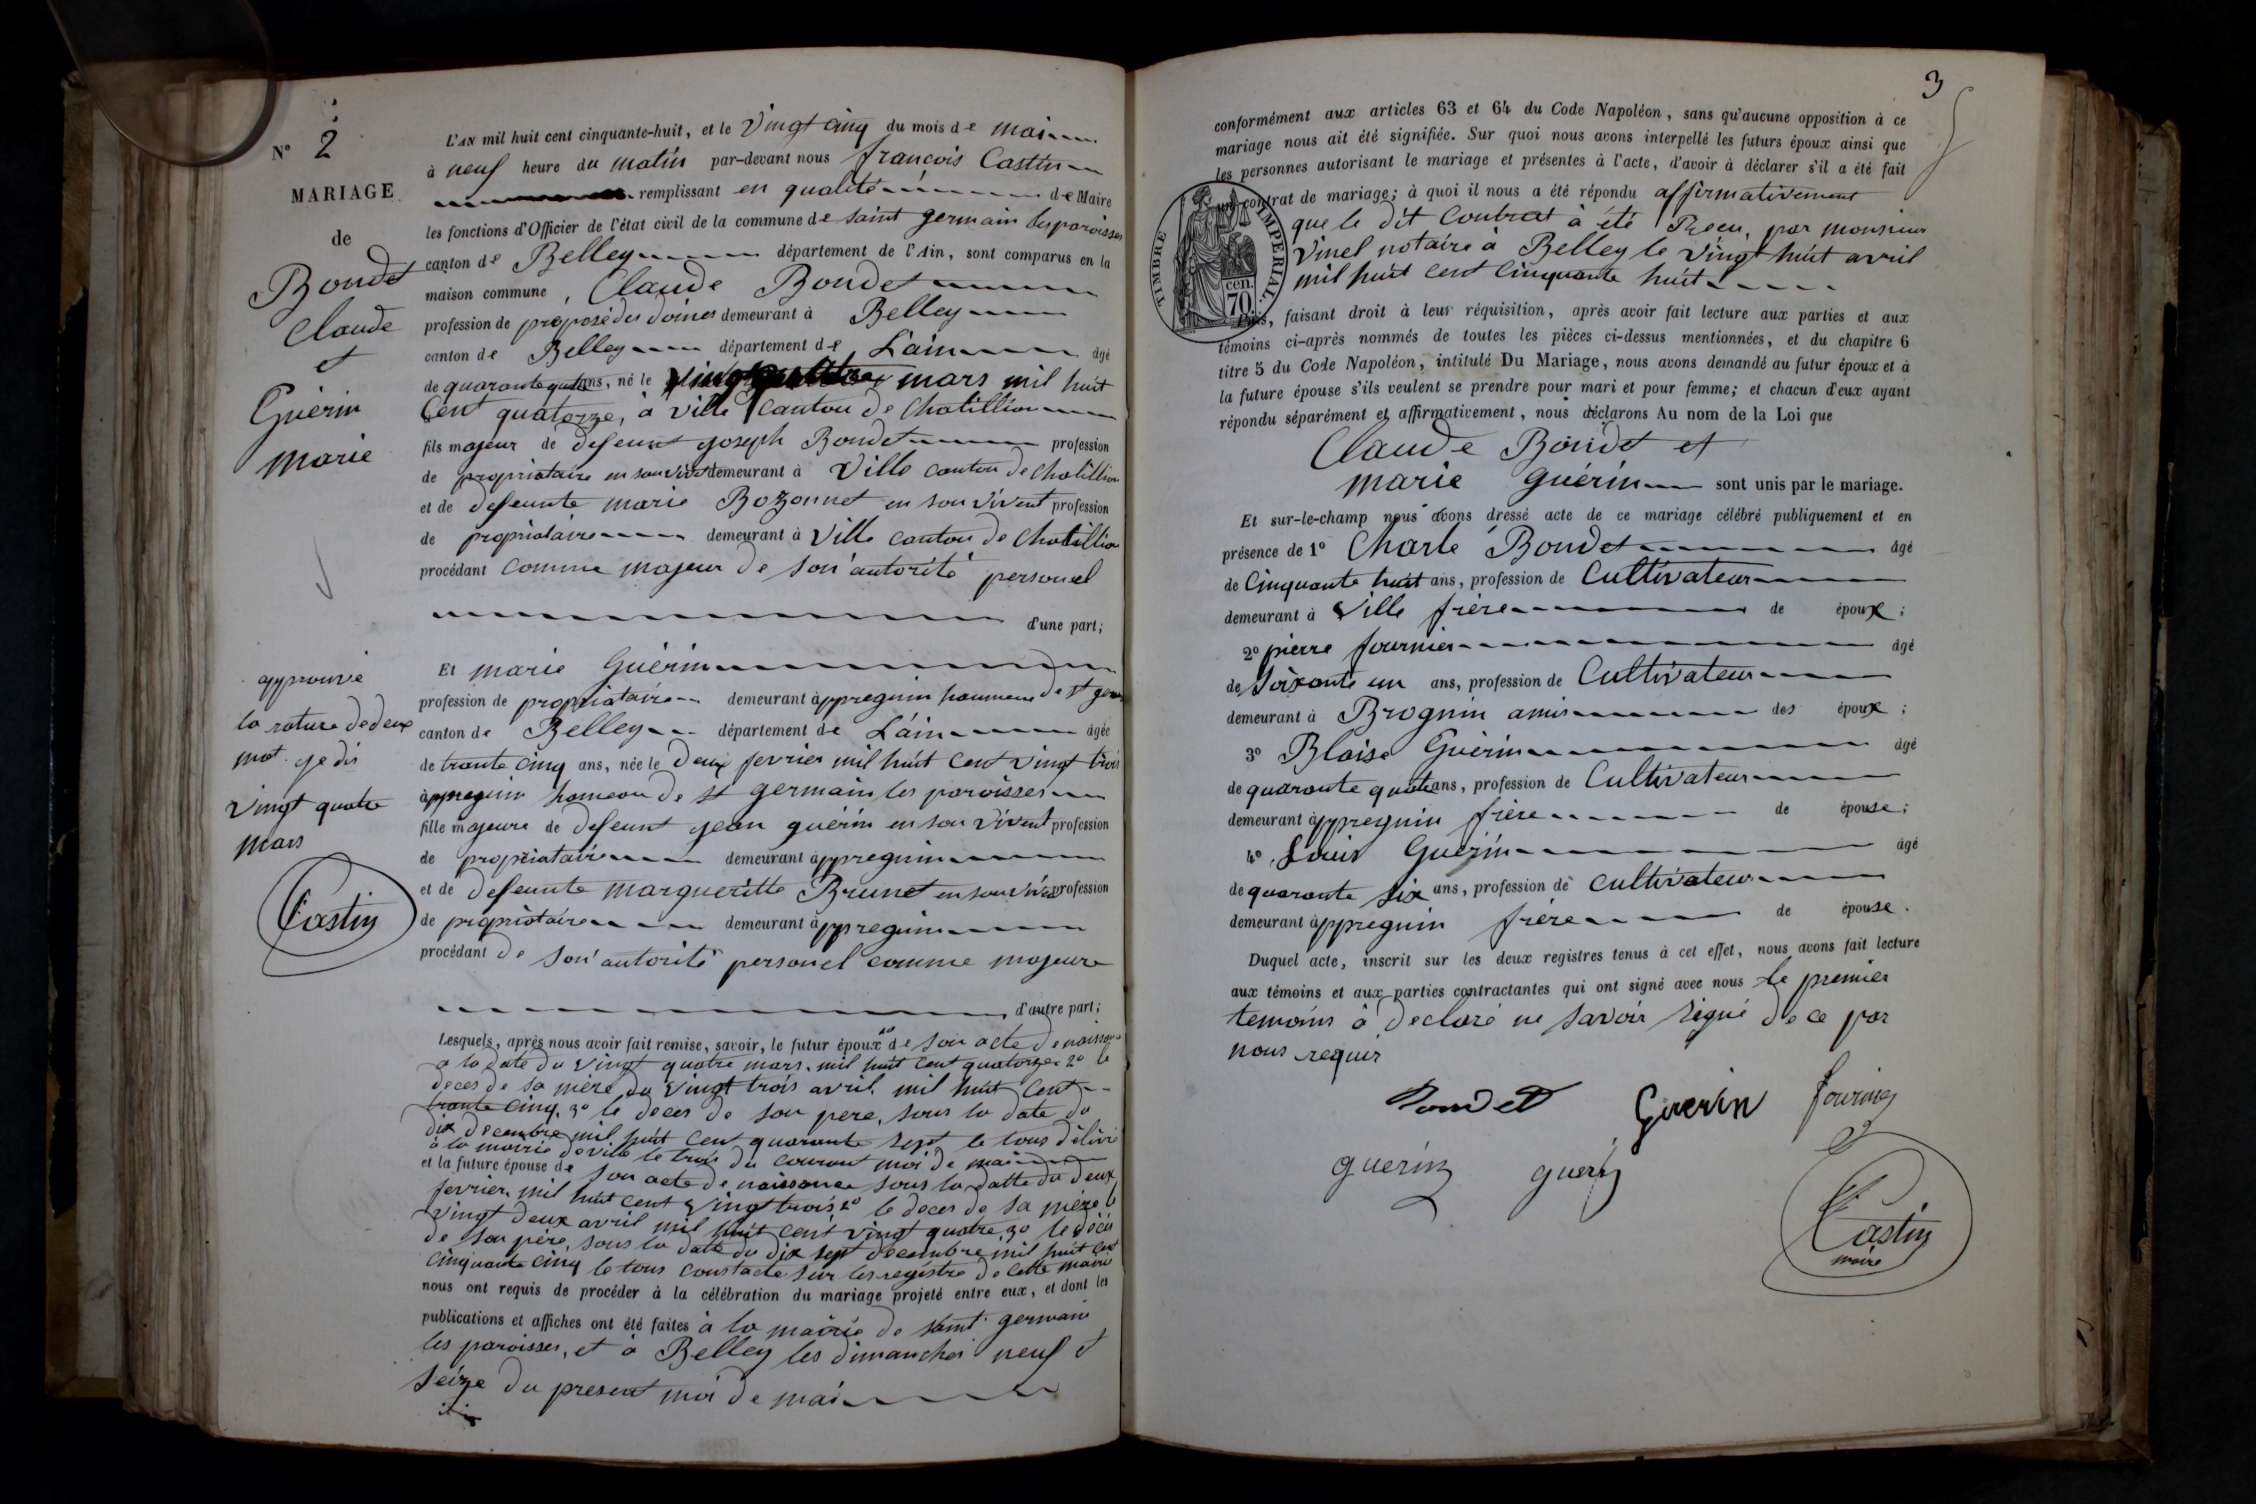 N° 2
MARIAGE
de
Bondet
Claude
et
Guérin
marie
approuvé
la rature de deux
mot. je dis
vingt quatre
mars
Castin
L'AN mil huit cent cinquante-huit, et le vingt cinq du mois de mai
à neuf heure du matin par-devant nous francois Castin
remplissant en qualité de Maire
les fonctions d'Officier de l'état civil de la commune de saint germain les paroisses
canton de Belley département de l'Ain, sont comparus en la
maison commune, Claude Bondet
profession de preposé des doines demeurant à Belley
canton de Belley département de L'ain âgé
de quarante quatre ans, né le mars mil huit
Cent quatorze, à ville Canton de Chatillion
fils majeur de defeunt joseph Bondet profession
de propriataire en son vivent demeurant à Ville canton de Chatillion
et de defeunte marie Bozonnet en son vivent profession
de propriataire demeurant à Ville canton de Chatillion
procédant comme majeur de son autorité personel
d'une part;
Et marie Guérin
profession de propriataire demeurant à appregnin hameau de st germ
canton de Belley département de L'ain âgée
de trante cinq ans, née le deux fevrier mil huit cent vingt trois
à appregnin hameau de st germain les paroisses
fille majeure de defeunt jean guérin en son vivent profession
de propriataire demeurant à appregnin
et de defeunte margueritte Brunet en son vivent profession
de propriataire demeurant à appregnin
procédant de son autorité personel comme majeure
d'autre part;
Lesquels, après nous avoir fait remise, savoir, le futur époux 1° de son acte de naissance
a la date du vingt quatre mars mil huit cent quatorze 2° le
deces de sa mère du vingt trois avril mil huit Cent
trante cinq. 3° le deces de son pere, sous la date du
dix decembre mil huit cent quarante sept le tous délivré
à la mairie de ville le trois du courant moi de mai
et la future épouse de son acte de naissance sous la datte du deux
fevrier mil huit cent vingt trois 2° le deces de sa mère le
vingt deux avril mil huit cent vingt quatre 3° le décés
de son père, sous la date du dix sept decembre mil huit cent
cinquante cinq le tous constaté sur les registre de cette mairie
nous ont requis de procéder à la célébration du mariage projeté entre eux, et dont les
publications et affiches ont été faites à la mairie de saint germain
les paroisses, et à Belley les dimanches neuf et
seize du present moi de mai
3
conformément aux articles 63 et 64 du Code Napoléon, sans qu'aucune opposition à ce
mariage nous ait été signifiée. Sur quoi nous avons interpellé les futurs époux ainsi que
les personnes autorisant le mariage et présentes à l'acte, d'avoir à déclarer s'il a été fait
un contrat de mariage; à quoi il nous a été répondu affirmativement
que le dit contrat à été Recu, par monsieur
vinel notaire à Belley le vingt huit avril
mil huit cent cinquante huit
TIMBRE IMPERIAL.
70 cen.
Puis, faisant droit à leur réquisition, après avoir fait lecture aux parties et aux
témoins ci-après nommés de toutes les pièces ci-dessus mentionnées, et du chapitre 6
titre 5 du Code Napoléon, intitulé Du Mariage, nous avons demandé au futur époux et à
la future épouse s'ils veulent se prendre pour mari et pour femme; et chacun d'eux ayant
répondu séparément et affirmativement, nous déclarons Au nom de la Loi que
Claude Bondet et
marie guérin sont unis par le mariage.
Et sur-le-champ nous avons dressé acte de ce mariage célébré publiquement et en
présence de 1° Charle Bondet âgé
de Cinquante huit ans, profession de Cultivateur
demeurant à Ville frère de époux;
2° pierre fournier âgé
de Soixante un ans, profession de Cultivateur
demeurant à Brognin amis des époux;
3° Blaise Guérin âgé
de quarante quatre ans, profession de Cultivateur
demeurant à appregnin frère de épouse;
4° Louis Guérin âgé
de quarante six ans, profession de cultivateur
demeurant à appregnin frère de épouse.
Duquel acte, inscrit sur les deux registres tenus à cet effet, nous avons fait lecture
aux témoins et aux parties contractantes qui ont signé avec nous le premier
temoins à declaré ne savoir signé de ce par
nous requir
Bondet Guerin fournier
guerin guerin
Castin
maire